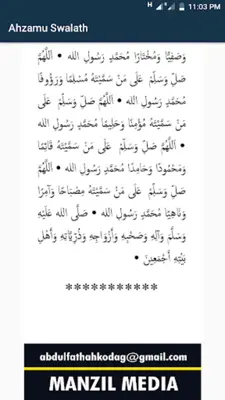 H 4G 11:03 PM
Ahzamu Swalath
وَصَفِيًّا وَمُخْتَارًا مُحَمَّدٍ رَسُولِ الله • اَللَّهُمَّ
صَلِّ وَسَلِّمْ عَلَى مَنْ سَمَّيْتَهُ مُسْلِمًا وَرَؤُوفًا
مُحَمَّدٍ رَسُولِ الله • اَللَّهُمَّ صَلِّ وَسَلِّمْ عَلَى
مَنْ سَمَّيْتَهُ مُؤْمِنًا وَحَلِيمًا مُحَمَّدٍ رَسُولِ الله
• اَللَّهُمَّ صَلِّ وَسَلِّمْ عَلَى مَنْ سَمَّيْتَهُ قَائِمًا
وَمَحْمُودًا وَحَامِدًا مُحَمَّدٍ رَسُولِ الله • اَللَّهُمَّ
صَلِّ وَسَلِّمْ عَلَى مَنْ سَمَّيْتَهُ مِصْبَاحًا وَآمِرًا
وَنَاهِيًا مُحَمَّدٍ رَسُولِ الله • صَلَّى الله عَلَيْهِ
وَسَلَّمَ وَآلِهِ وَصَحْبِهِ وَأَزْوَاجِهِ وَذُرِّيَّاتِهِ وَأَهْلِ
بَيْتِهِ أَجْمَعِينَ •
***********
abdulfathahkodag@gmail.com
MANZIL MEDIA